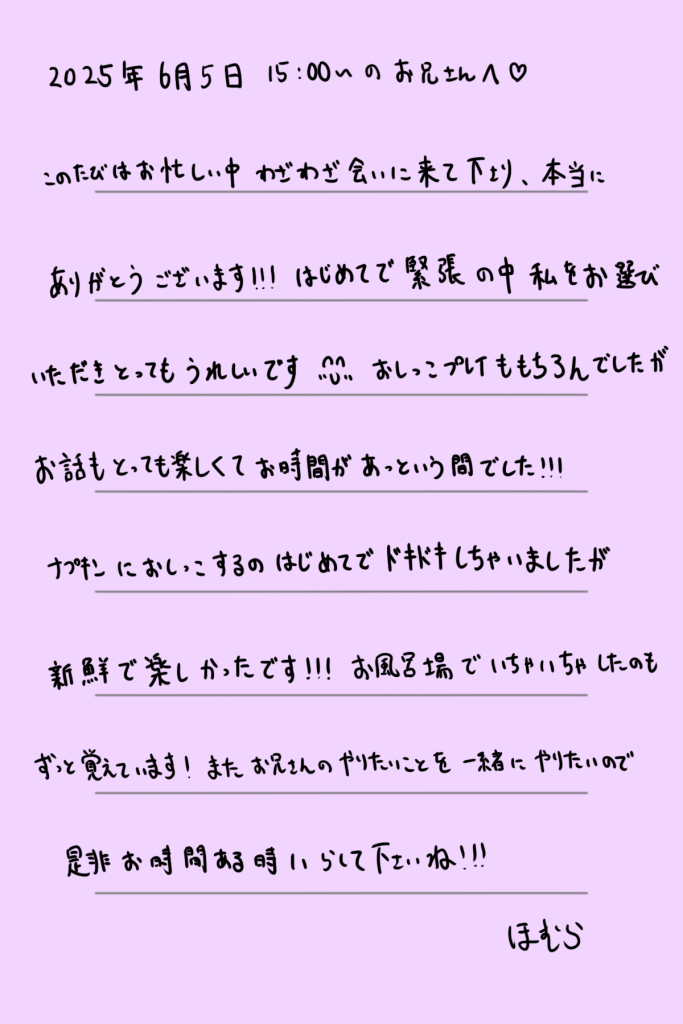 2025年 6月5日 15:00〜の お兄さんへ♡
このたびはお忙しい中 わざわざ会いに来て下さり、本当に
ありがとうございます!!! はじめてで緊張の中 私をお選び
いただきとってもうれしいです おしっこプレイももちろんでしたが
お話もとっても楽しくて お時間が あっという間でした!!!
ナプキンにおしっこするの はじめてで ドキドキしちゃいましたが
新鮮で楽しかったです!!! お風呂場でいちゃいちゃしたのも
ずっと覚えています! また お兄さんのやりたいことを 一緒に やりたいので
是非お時間ある時いらして下さいね!!!
ほむら